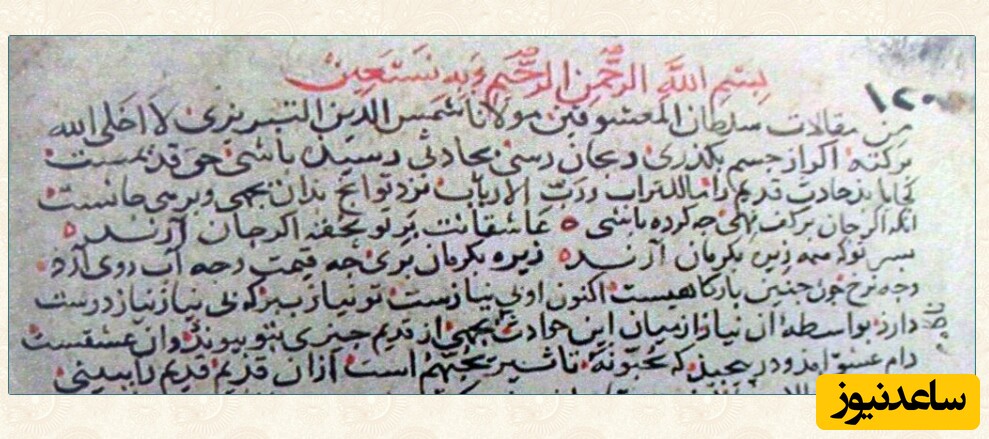 بسم الله الرحمن الرحیم وبه نستعین
۱۲۰
من مقالات سلطان المعشوقین مولانا شمس الدین التبریزی لا اخلی الله
برکته اکر از جسم بکذری و بجان رسی بحادثی رسیده باشی حق قدیمست
کجا یابد حادث قدیم را ماللتراب و رب الارباب نزد تو انچ بدان بجهی و برهی جانست
انکه اکر جان بر کف نهی چه کرده باشی عاشقانت بر تو تحفه اکر جان آرند
بسر تو که همه زیره بکرمان آرند زیره بکرمان بری چه قیمت و چه آب روی آرد
و چه نرخ چون چنین بارکاهیست اکنون او بی نیازست تو نیاز ببر که بی نیاز نیاز دوست
دارد بواسطه آن نیاز از میان این حوادث بجهی از قدیم چیزی بتو پیوندد و ان عشقست
دام عشق امد و در پیچید که یحبونه تاثیر یحبهم است از ان قدیم قدیم را ببینی
ساعدنیوز